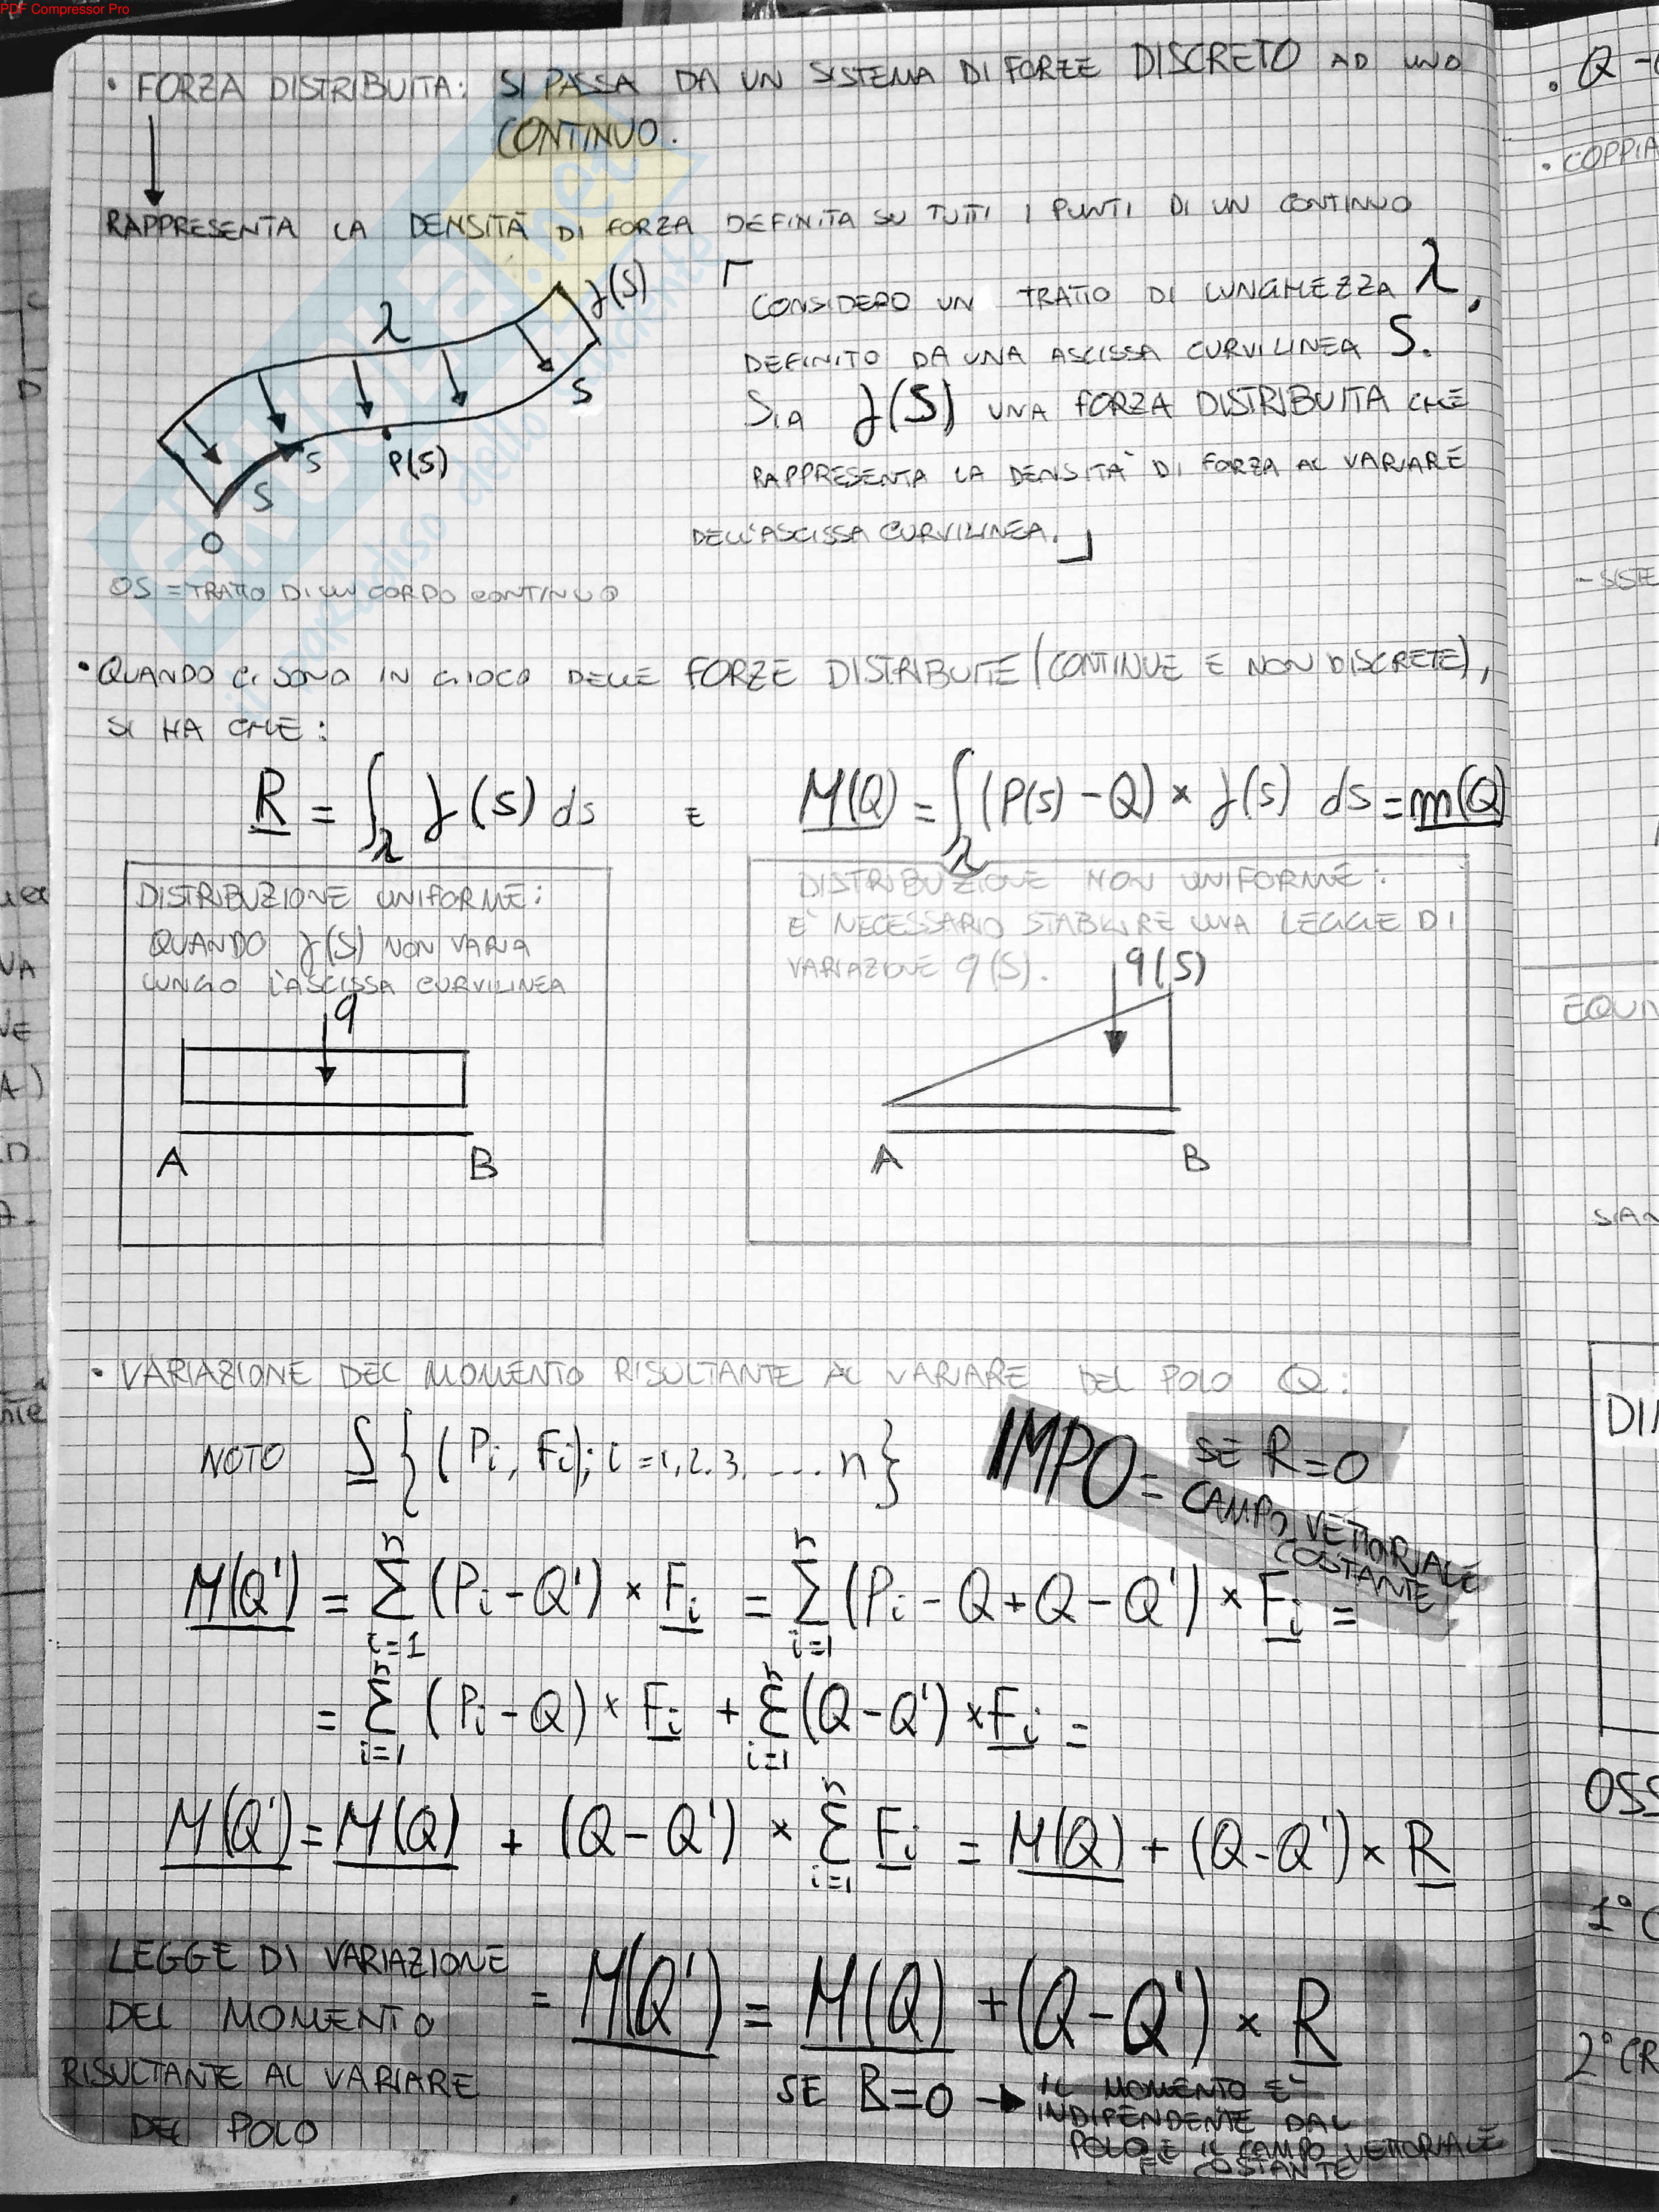 PDF Compressor Pro
• FORZA DISTRIBUITA: SI PASSA DA UN SISTEMA DI FORZE DISCRETO AD UNO
CONTINUO.
RAPPRESENTA LA DENSITÀ DI FORZA DEFINITA SU TUTTI I PUNTI DI UN CONTINUO
λ
f(S)
S
S
P(S)
S
O
OS = TRATTO DI UN CORPO CONTINUO
CONSIDERO UN TRATTO DI LUNGHEZZA λ,
DEFINITO DA UNA ASCISSA CURVILINEA S.
SIA f(S) UNA FORZA DISTRIBUITA CHE
RAPPRESENTA LA DENSITÀ DI FORZA AL VARIARE
DELL'ASCISSA CURVILINEA.
• QUANDO CI SONO IN GIOCO DELLE FORZE DISTRIBUITE (CONTINUE E NON DISCRETE),
SI HA CHE:
R = ∫λ f(s) ds E M(Q) = ∫λ (P(s) - Q) × f(s) ds = m(Q)
DISTRIBUZIONE UNIFORME:
QUANDO f(S) NON VARIA
LUNGO L'ASCISSA CURVILINEA
q
A B
DISTRIBUZIONE NON UNIFORME:
E' NECESSARIO STABILIRE UNA LEGGE DI
VARIAZIONE q(S).
q(S)
A B
• VARIAZIONE DEL MOMENTO RISULTANTE AL VARIARE DEL POLO Q:
NOTO S {(Pi, Fi); i = 1, 2. 3. .... n}
IMPO = SE R=0
CAMPO VETTORIALE
COSTANTE
M(Q') = Σ(i=1, n) (Pi - Q') × Fi = Σ(i=1, n) (Pi - Q + Q - Q') × Fi =
= Σ(i=1, n) (Pi - Q) × Fi + Σ(i=1, n) (Q - Q') × Fi =
M(Q') = M(Q) + (Q - Q') × Σ(i=1, n) Fi = M(Q) + (Q - Q') × R
LEGGE DI VARIAZIONE
DEL MOMENTO
RISULTANTE AL VARIARE
DEL POLO
= M(Q') = M(Q) + (Q - Q') × R
SE R=0 → IL MOMENTO E'
INDIPENDENTE DAL
POLO E IL CAMPO VETTORIALE
E' COSTANTE
• Q
• COPPIA
- SISTE
1°
2° CR
OSS